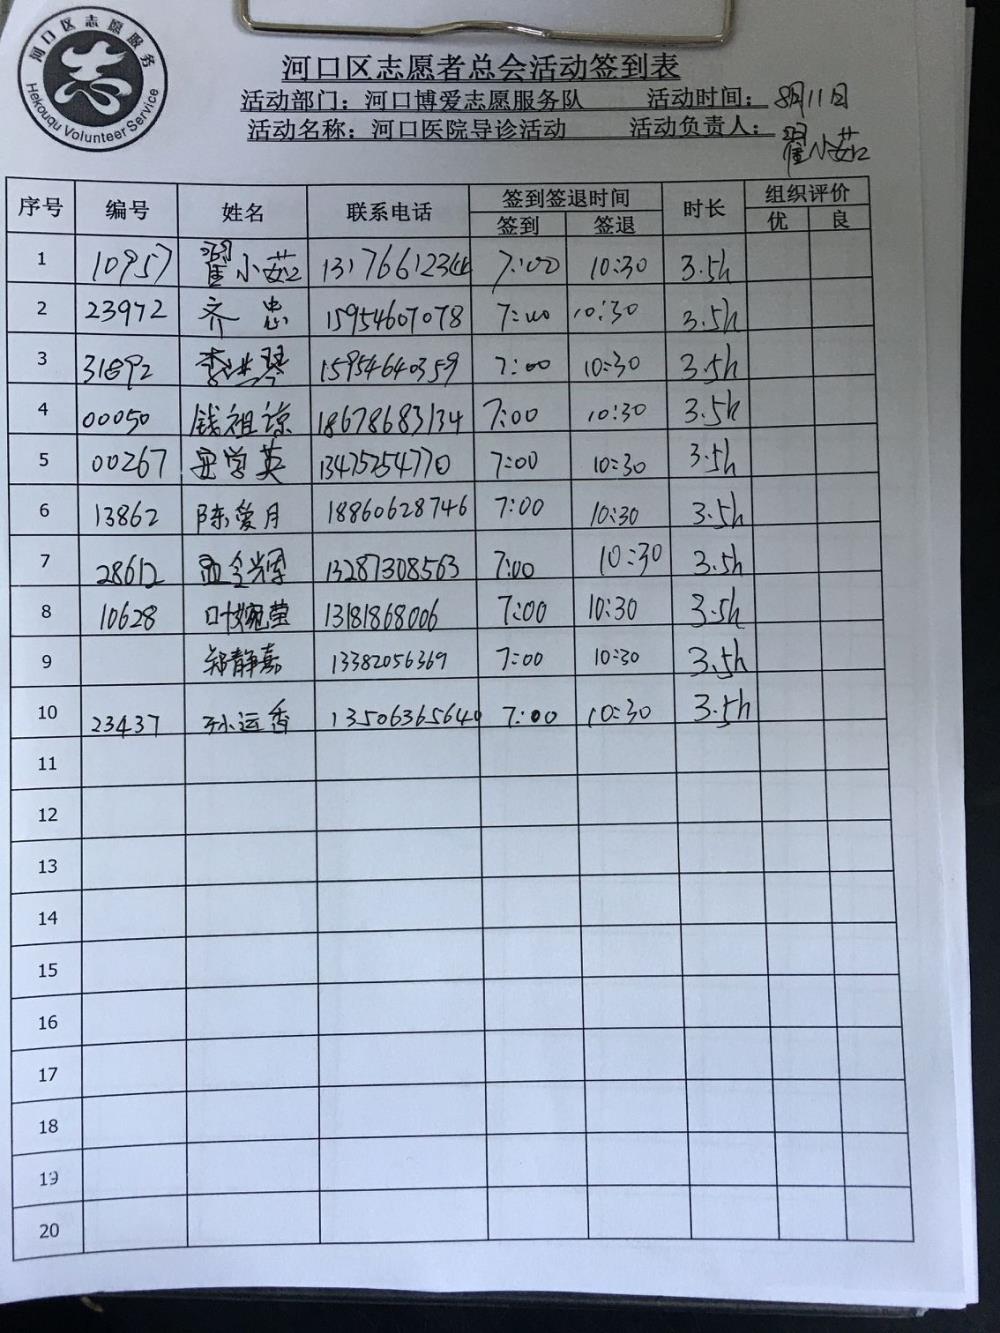 河口区志愿服务
Hekouqu Volunteer Service
河口区志愿者总会活动签到表
活动部门：河口博爱志愿服务队 活动时间：8月11日
活动名称：河口医院导诊活动 活动负责人：翟小茹
序号 编号 姓名 联系电话 签到签退时间 时长 组织评价
签到 签退 优 良
1 10957 翟小茹 7:00 10:30 3.5h
2 23972 齐忠 15954607078 7:00 10:30 3.5h
3 31892 李 15954640359 7:00 10:30 3.5h
4 00050 钱祖谅 18678683134 7:00 10:30 3.5h
5 00267 学英 13475254770 7:00 10:30 3.5h
6 13862 陈爱月 18860628746 7:00 10:30 3.5h
7 28612 13287308563 7:00 10:30 3.5h
8 10628 叶婉莹 13181868006 7:00 10:30 3.5h
9 郑静嘉 13382056369 7:00 10:30 3.5h
10 23437 孙运香 13506365640 7:00 10:30 3.5h
11
12
13
14
15
16
17
18
19
20